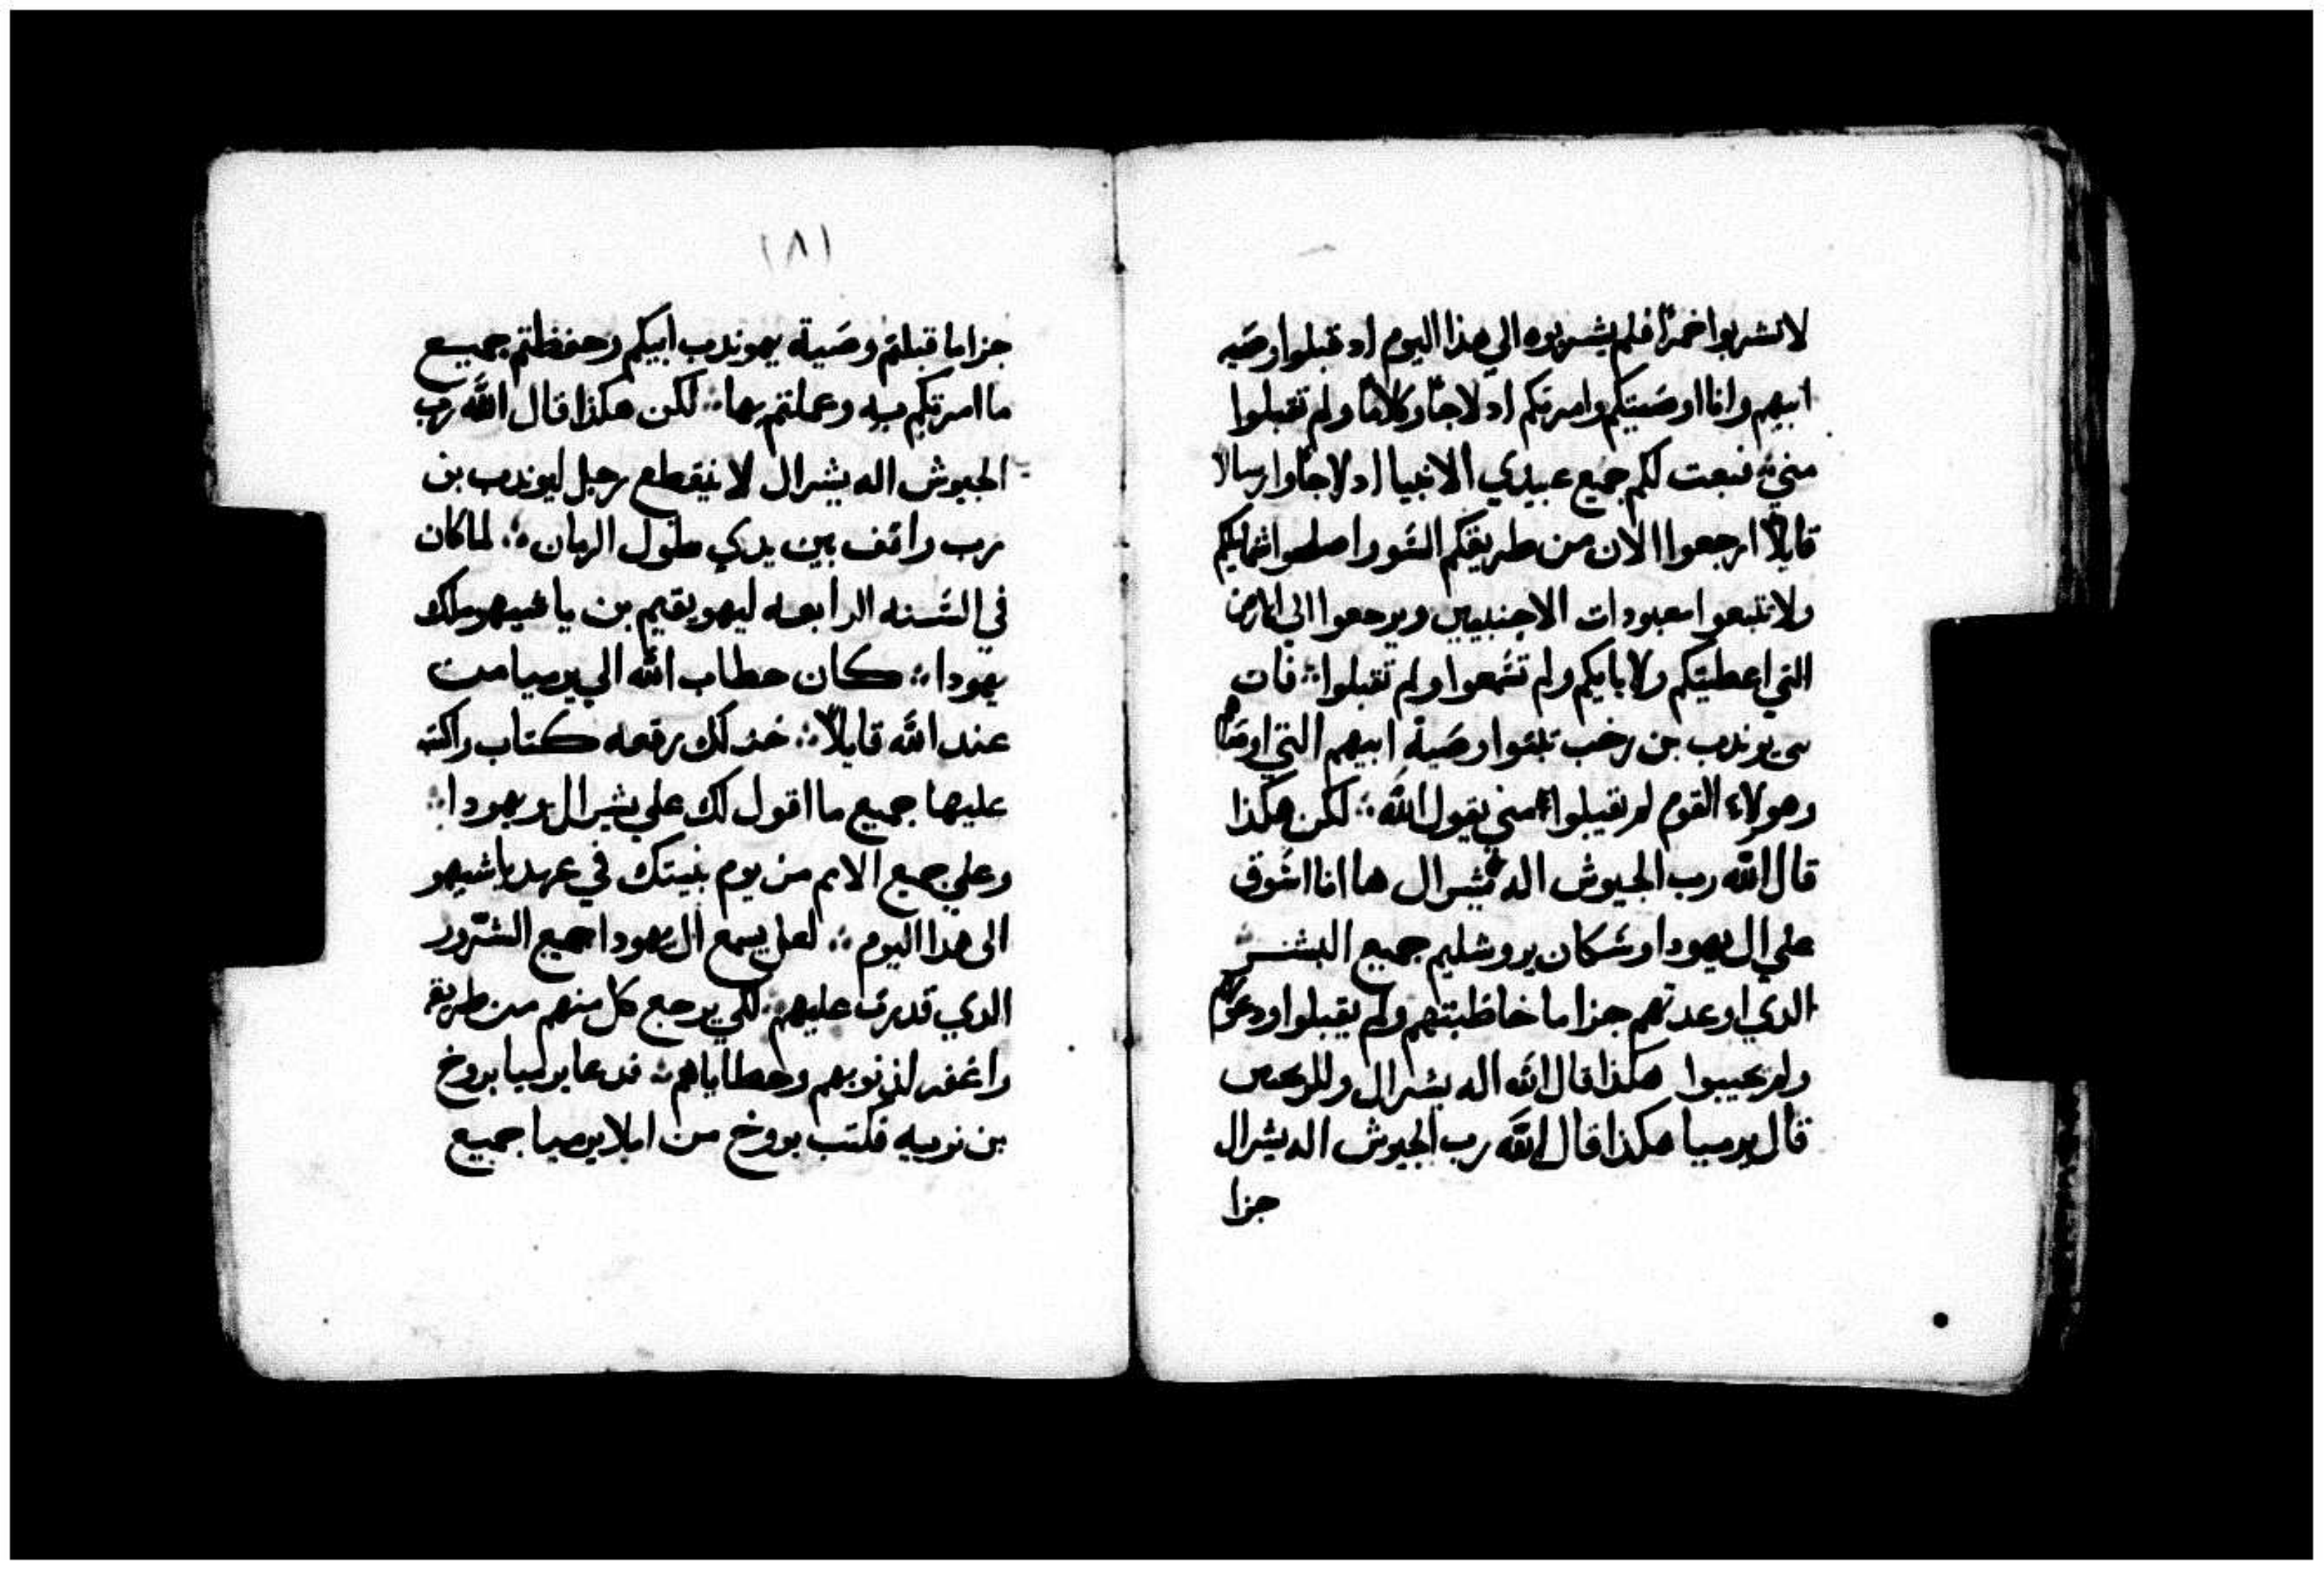 لاتشربوا خمرًا فلم يشربوه الي هذا اليوم اد قبلوا وصَيه
ابيهم وانا اوصَيتكم وامرتكم ادلاجًا وكلامًا ولم تقبلوا
مني ∴ فبعت لكم جميع عبيدي الانبيا ادلاجًا وارسالا
قايلاً ارجعوا الان من طريقكم السَّو واصلحوا شمايلكم
ولاتتبعوا معبودات الاجنبيين وترجعوا الي الارض
التي اعطيتكم ولابايكم ولم تسَمعوا ولم تقبلوا ∴ فان
بني يوندب بن رخب تبتوا وصَية ابيهم التي اوصَاهم
وهولاء القوم لم يقبلوا مني يقول الله ∴ لكن هكذا
قال الله رب الجيوش اله يشرال ها انا اسَوق
علي ال يهودا وسَكان يروشليم جميع البشر
الدي اوعدتهم جزا ما خاطبتهم ولم يقبلوا ودعوتهم
ولم يجيبوا هكذا قال الله اله يشرال
قال يرميا هكذا قال الله رب الجيوش اله يشرال
جزا
١٨١
جزا ما قبلتم وصَية يهوندب ابيكم وحفظتم جميع
ما امرتكم به وعملتم بها ∴ لكن هكذا قال الله رب
الجيوش اله يشرال لا ينقطع رجل ليوندب بن
رب واقف بين يدي طول الزمان ∴ لما كان
في السَنه الرابعه ليهويقيم بن ياشيهو ملك
يهودا ∴ كان خطاب الله الي يرميا من
عند الله قايلاً ∴ خذ لك رقعه كتاب واكتب
عليها جميع ما اقول لك علي يشرال ويهودا ∴
وعلي جميع الامم من يوم بنيتك في عهد ياشيهو
الى هدا اليوم ∴ لعل يسمع ال يهودا جميع الشرور
الدي قدرت عليهم ∴ لكي يرجع كل منهم من طريقه
واغفر لذنوبهم وخطاياهم ∴ فدعا يرميا بروخ
بن نوييه فكتب بروخ من املا يرميا جميع